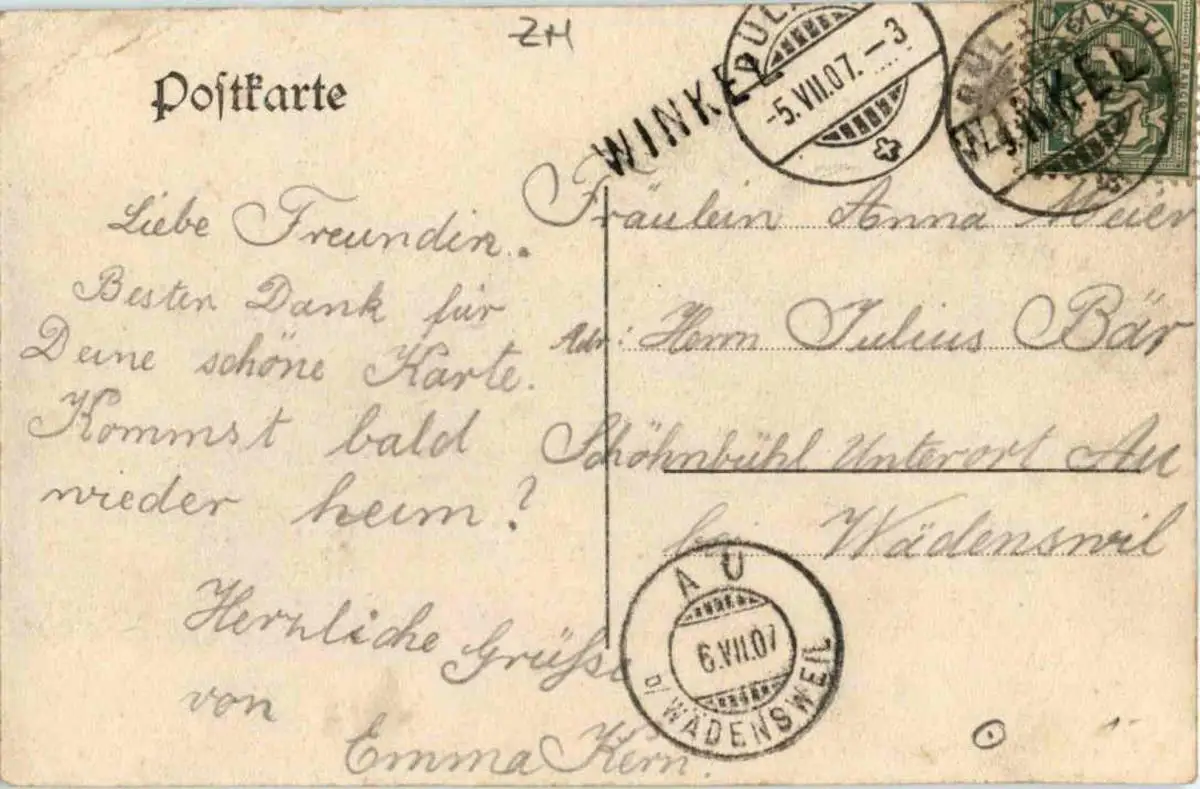 ZH
Postkarte
WINKEL
BÜLACH
-5.VII.07.-3
HELVETIA
WINKEL
Liebe Freundin.
Besten Dank für
Deine schöne Karte.
Kommst bald
wieder heim?
Herzliche Grüsse
von
Emma Kern.
Fräulein Anna Meier
Adr: Herrn Julius Bär
Schöhnbühl Unterort Au
bei Wädenswil
AU
6.VII.07
b/WÄDENSWEIL